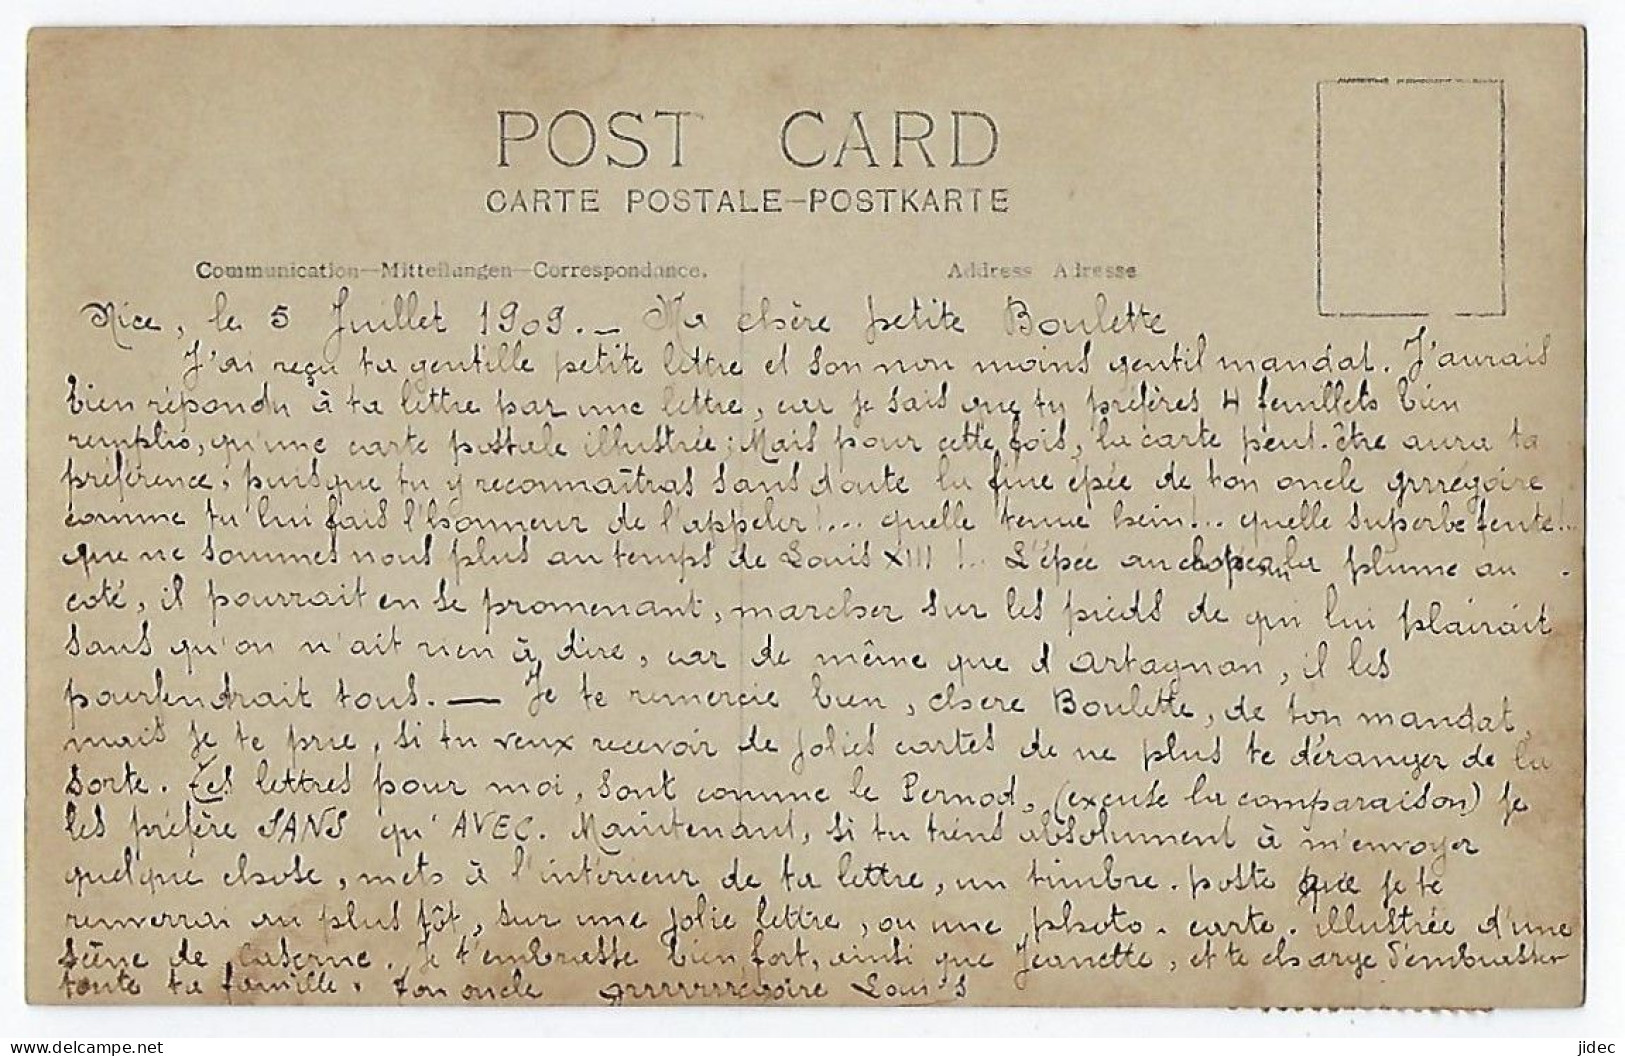 POST CARD
CARTE POSTALE-POSTKARTE
Communication—Mitteilungen—Correspondance.
Address Adresse
Nice, le 5 Juillet 1909. — Ma chère petite Boulette
J'ai reçu ta gentille petite lettre et son non moins gentil mandat. J'aurais
bien répondu à ta lettre par une lettre, car je sais que tu préfères 4 feuillets bien
remplis, qu'une carte postale illustrée; Mais pour cette fois, la carte peut-être aura ta
préférence, puisque tu y reconnaîtras sans doute la fine épée de ton oncle grrrégoire
comme tu lui fais l'honneur de l'appeler!... quelle tenue hein!.. quelle superbe fente!..
que ne sommes nous plus au temps de Louis XIII !.. L'épée au la plume au
coté, il pourrait en se promenant, marcher sur les pieds de qui lui plairait
sans qu'on n'ait rien à dire, car de même que d'Artagnan, il les
pourfendrait tous. — Je te remercie bien, chere Boulette, de ton mandat,
mais je te prie, si tu veux recevoir de jolies cartes de ne plus te déranger de la
sorte. Les lettres pour moi, sont comme le Pernod, (excuse la comparaison) je
les préfère SANS qu'AVEC. Maintenant, si tu tiens absolument à m'envoyer
quelque chose, mets à l'intérieur de ta lettre, un timbre-poste que je te
renverrai au plus tôt, sur une jolie lettre, ou une photo-carte-illustrée d'une
scène de caserne. Je t'embrasse bien fort, ainsi que Jeanette, et te charge d'embrasser
toute ta famille. Ton oncle grrrrrrrégoire Louis
jidec